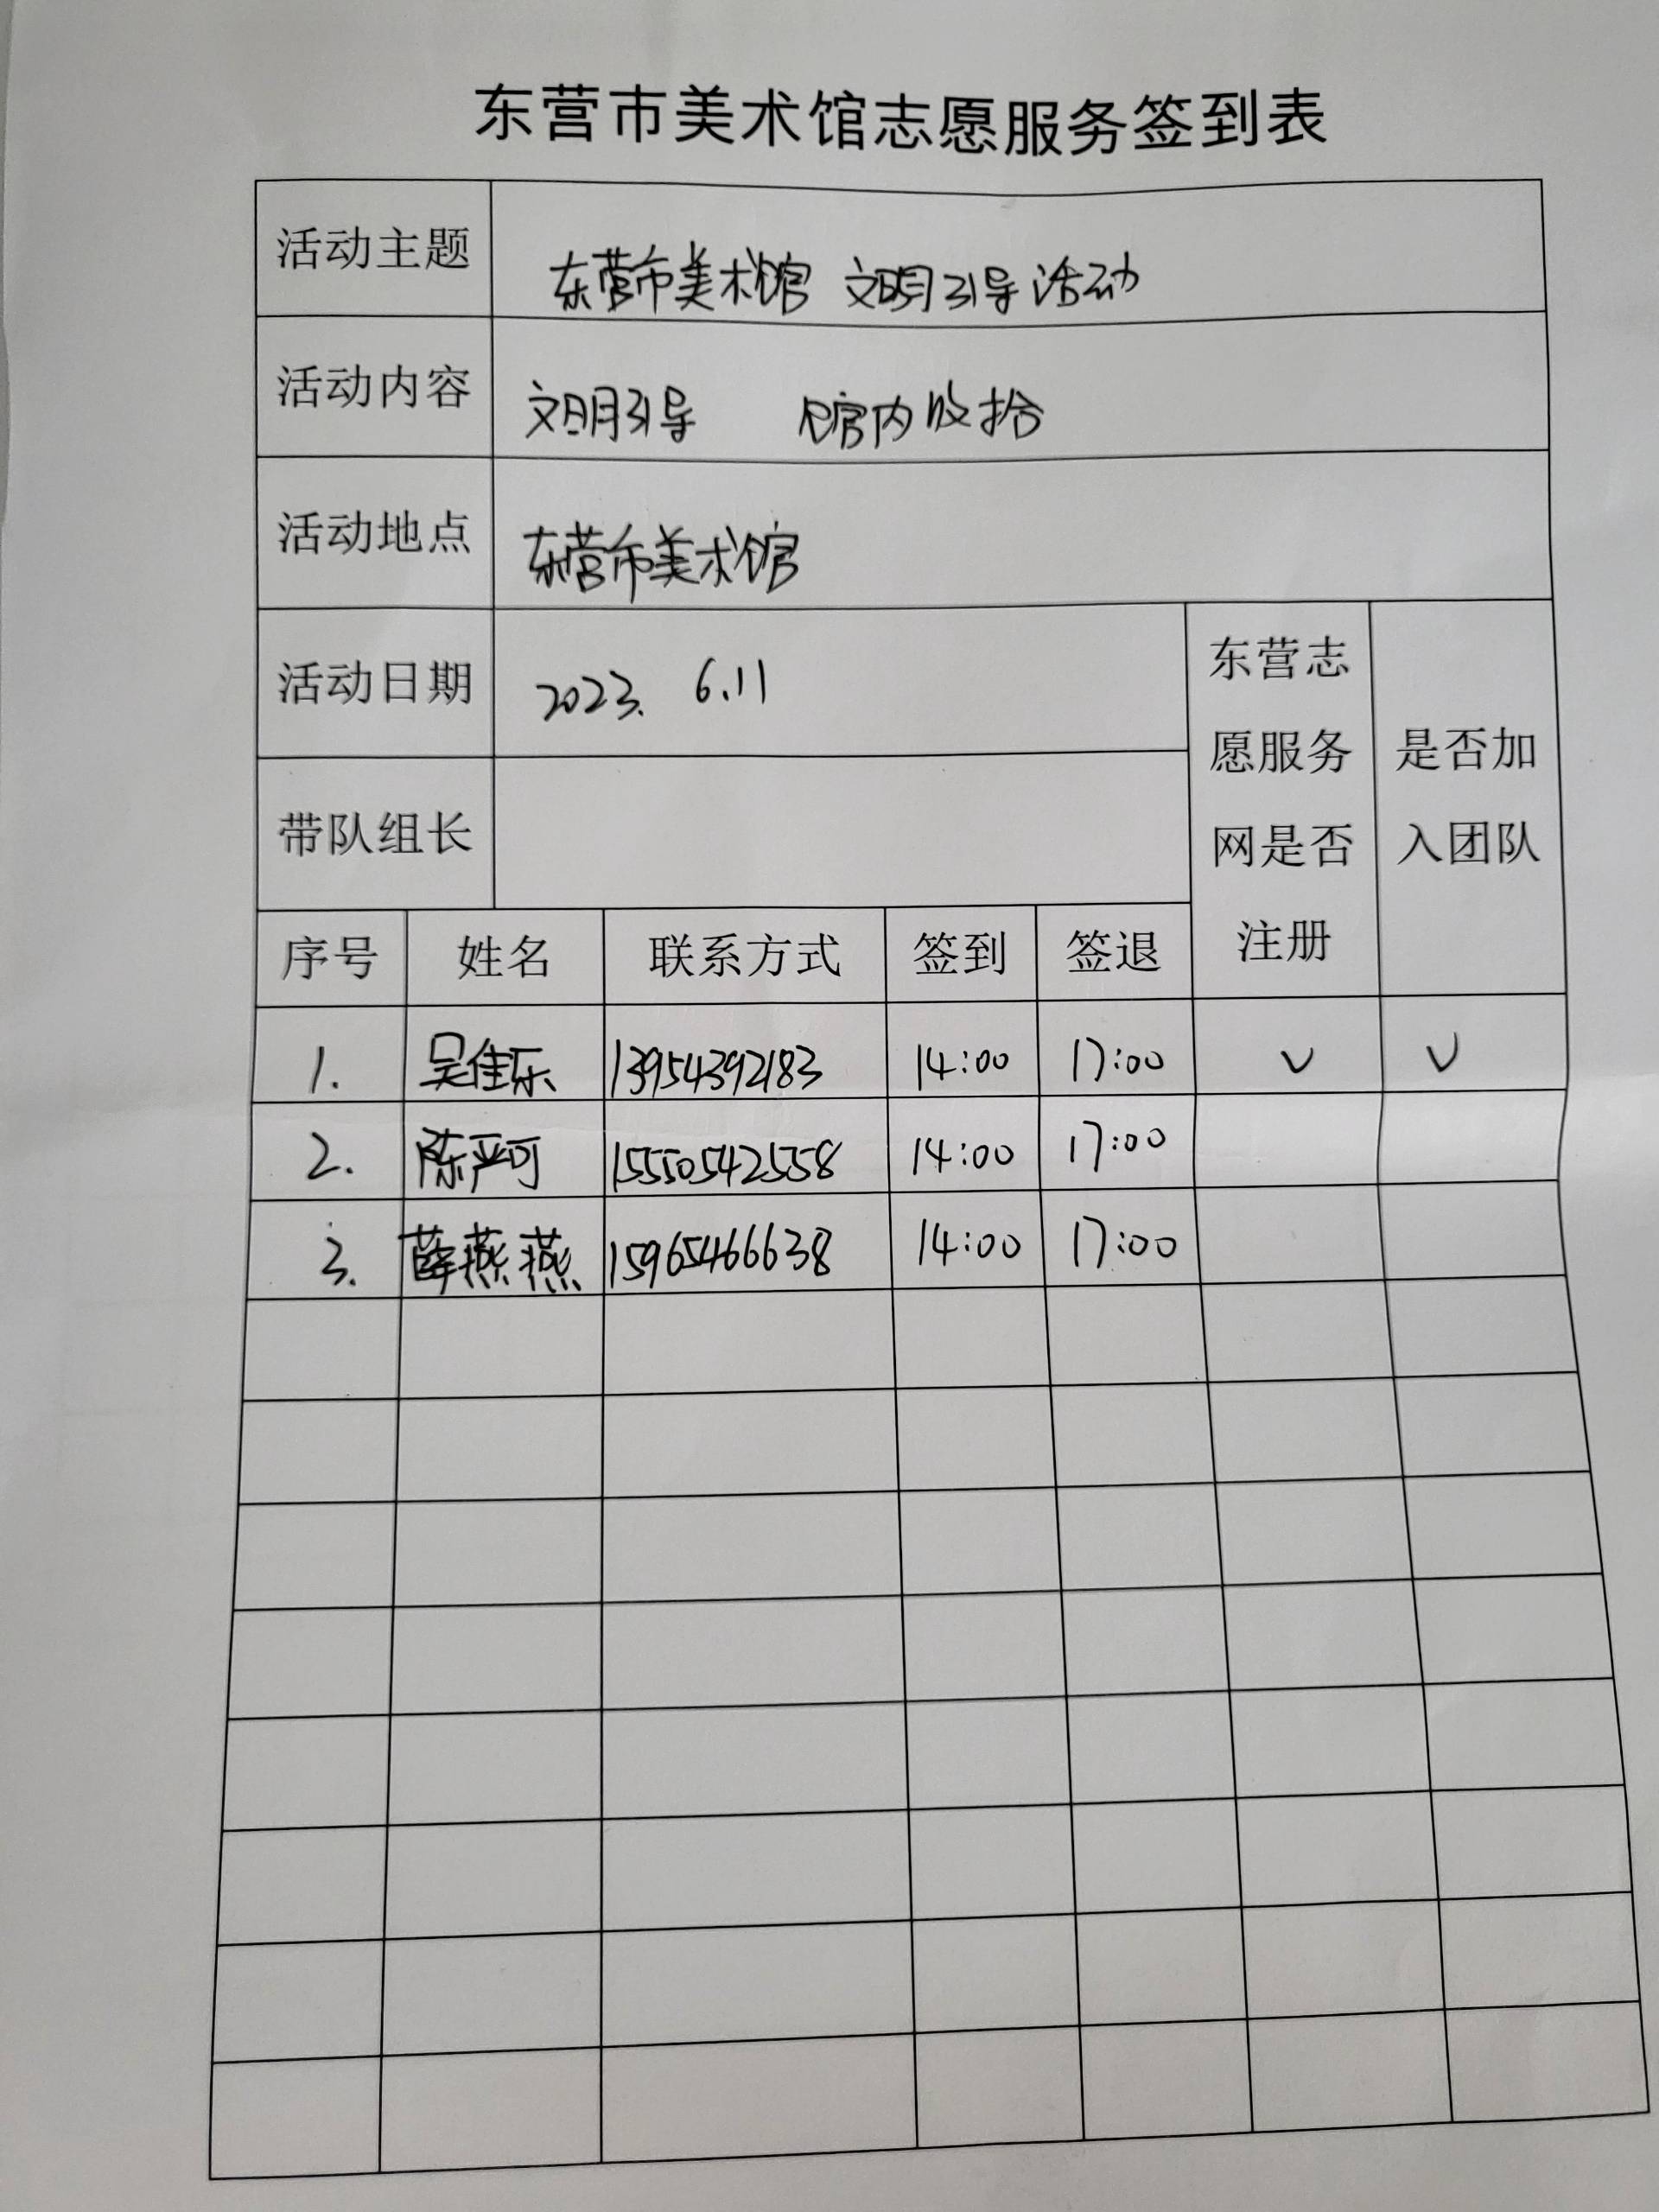 东营市美术馆志愿服务签到表
活动主题 东营市美术馆 文明引导活动
活动内容 文明引导 馆内收拾
活动地点 东营市美术馆
活动日期 2023. 6.11
带队组长
东营志
愿服务
网是否
注册
是否加
入团队
序号 姓名 联系方式 签到 签退
1. 吴佳乐 13954392183 14:00 17:00 √ √
2. 陈严可 15550542558 14:00 17:00
3. 薛燕燕 15965466638 14:00 17:00